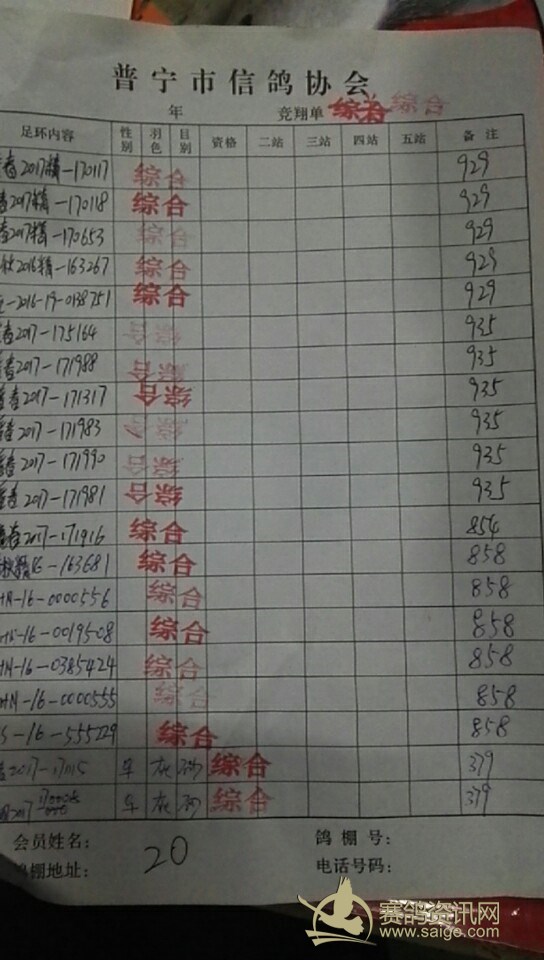 普宁市信鸽协会
年 竞翔单 综合 综合
足环内容 性别 羽色 目别 资格 二站 三站 四站 五站 备注
春2017精-170117 综合 929
2017精-170118 综合 929
春2017精-170653 综合 929
秋2016精-163267 综合 929
-2016-19-0138751 综合 929
春2017-175164 综合 935
春2017-171988 综合 935
春2017-171317 综合 935
春2017-171983 综合 935
春2017-171990 综合 935
春2017-171981 综合 935
春2017-171916 综合 854
16-163681 综合 858
HN-16-0000556 综合 858
-16-0019508 综合 858
HN-16-0385424 综合 858
HN-16-0000555 综合 858
-16-555229 综合 858
2017-17015 灰 综合 379
2017 灰 综合 379
会员姓名: 鸽棚号:
鸽棚地址: 20 电话号码:
赛鸽资讯网
www.saige.com